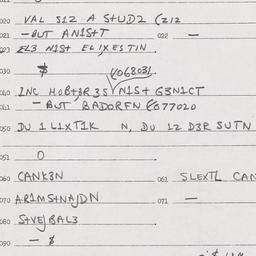 020 VAL S12 A STUD2 (Z12
021 - BUT AN1ST 022 -
023 EL3 N1ST EL1XESTIN
030 $
(4068031.
040 INC HOBT3R 35 N1ST G3N1CT
041 - BUT BADORFN (077020
050 DU 1 L1XT1K N, DU 12 D3R SUTN
051 0
060 CANK3N 061 SLEXTL CAN
070 AR1MSTNAJDN 071 -
080 STVEJBAL3
090 - $